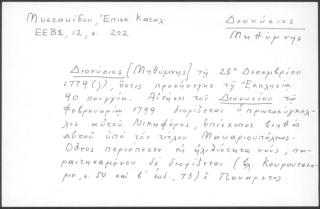 Μυστακίδου, Ἐπισκ. Κατάλ
ΕΕΒΣ, 12, σ. 202
Διονύσιος
Μηθύμνης
Διονύσιος [Μηθύμνης] τῇ 28ῃ Δεκεμβρίου
1779 (;), ὅστις προσήνεγκε τῇ Ἐκκλησίᾳ
90 πουγγία. Αἰτήσει τοῦ Διονυσίου τῷ
Φεβρουαρίῳ 1799 διορίζεται ὁ πρωτοσύγκελ-
λος αὐτοῦ Νικηφόρος, ἐπίσκοπος βοηθὸς
αὐτοῦ ὑπὸ τὸν τίτλον Μακαριουπόλεως.
Οὗτος περιέπεσεν εἰς ἠλιθιότητα νοός, πα-
ραιτησαμένου δὲ διορίζεται (βλ. Κουρουτσε-
σ. 54 καὶ β' ἐκδ., 73) ὁ Πανάρετος.